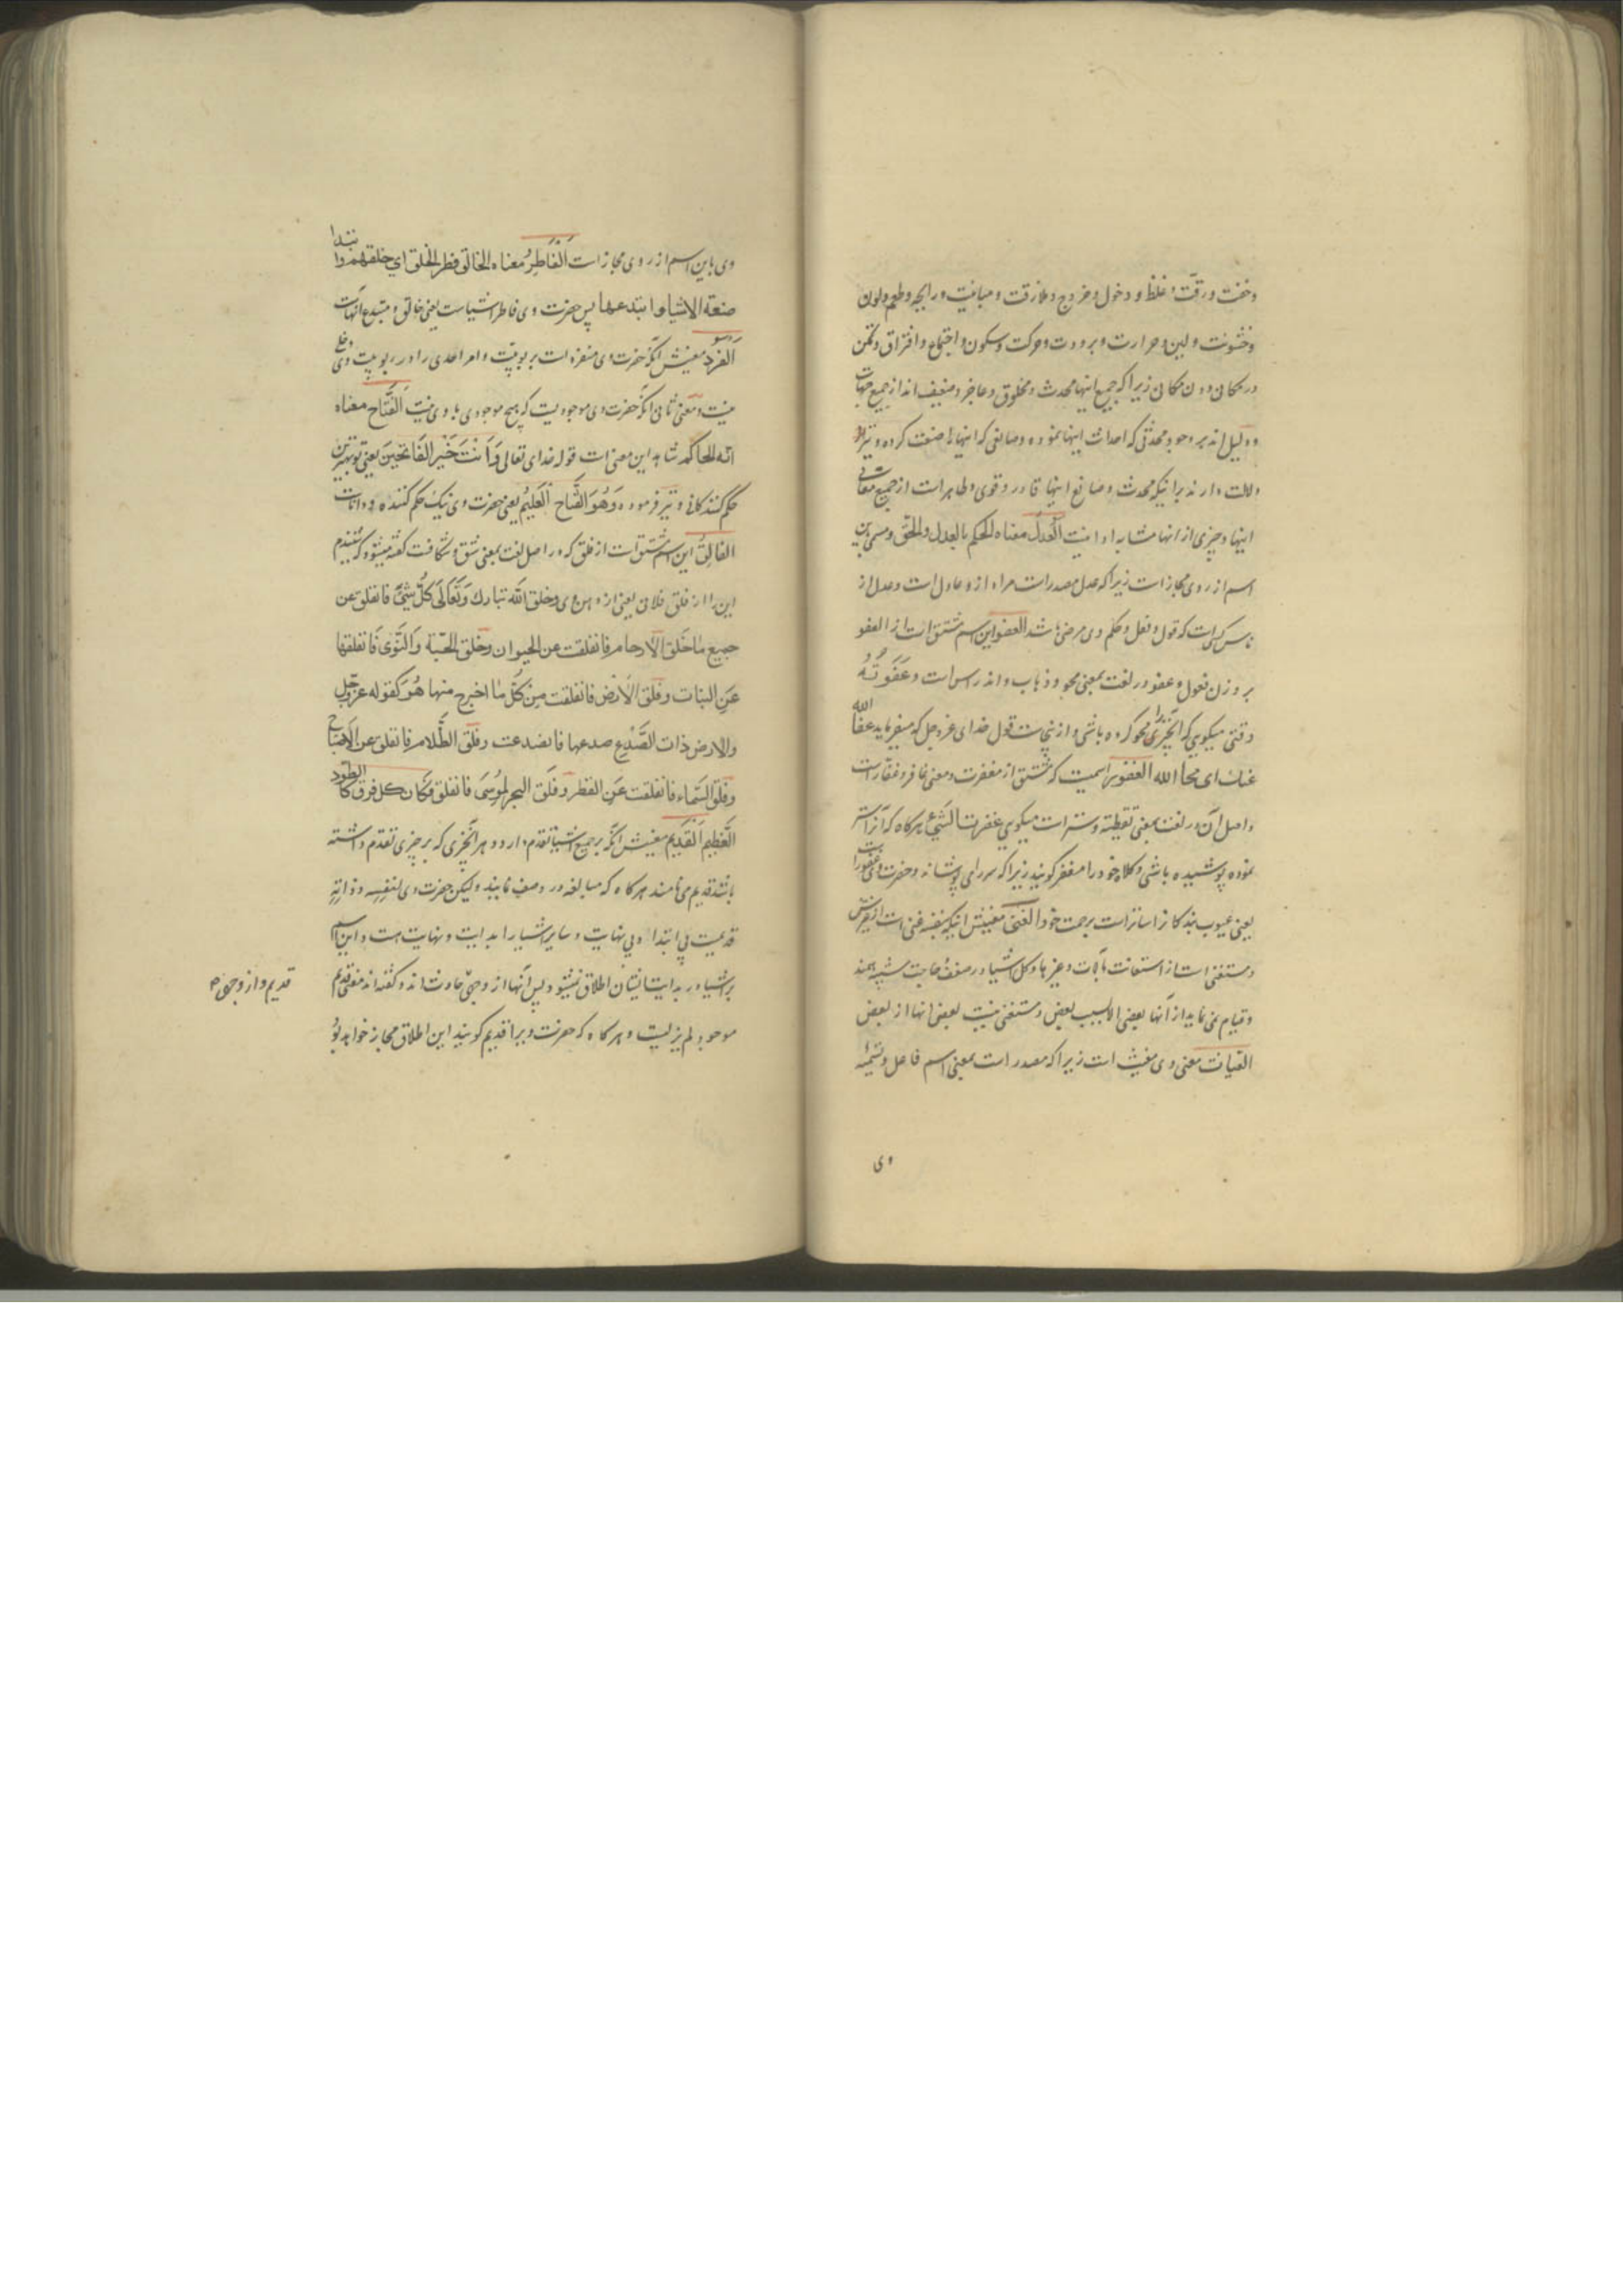 وخفت ورقت وغلظ و دخول وخروج وملازقت ومباینت ورایحه وطعم ولون
وخشونت ولین وحرارت وبرودت وحرکت وسکون واجتماع وافتراق وتمکن
در مکانی دون مکانی زیرا که جمیع اینها محدث ومخلوق وعاجز وضعیف اند از جمیع جهات
ودلیل اند بر وجود محدثی که احداث اینها نموده وصانعی که اینها را صنعت کرده ونیز
دلالت دارند برانیکه محدث وصانع اینها قادر وقوی وطاهر است از جمیع معانی
اینها وچیزی از انها مشابه او نیست العدل معناه الحکم بالعدل والحق ومسمی باین
اسم از روی مجاز است زیرا که عدل مصدر است مراد ازو عادل است وعدل از
ناس کسی است که قول وفعل وحکم وی مرضی باشد العفو این اسم مشتق است از العفو
بر وزن فعول وعفو در لغت بمعنی محو وذهاب واندراس است وعَفَوتُهُ
وقتی میکویی که انچیزی را محو کرده باشی وازینست قول خدای عزوجل که میفرماید عفا الله
عنك ای محا الله الغفور اسمیت که مشتق از مغفرت ومعنی غافر وغفار است
واصل آن در لغت بمعنی تغطیته وستر است میکویی غفرت الشیء هرکاه که آنرا ستر
نموده پوشیده باشی وکلاه خود را مغفر کویند زیرا که سر را می پوشاند وحضرت وی غفور است
یعنی عیوب بندکانرا ساتر است برحمت خود الغنی معنیش انیکه بنفسه غنی است از غیرش
ومستغنی است از استعانت بآلات وغیرها وکل اشیا در ضعف وحاجت شبیه بهمند
وقیام نمی نماید از آنها بعضی الا بسبب بعض ومستغنی نیست بعضی انها از بعض
الغیاث معنی وی مغیث است زیرا که مصدر است بمعنی اسم فاعل وتسمیه
وی
وی باین اسم از روی مجاز است اَلْفَاطِرُ معناه الخالق فطر الخلق ای خلقهم وابتدا
صنعة الاشیاء وابتدعها پس حضرت وی فاطر اشیاست یعنی خالق ومبتدع آنهاست
الفرد معنیش آنکه حضرت وی منفرد است بربوبیت وامر احدی را در ربوبیت وی دخلی
نیست ومعنی ثانی آنکه حضرت وی موجودیست که هیچ موجودی با وی نیست اَلْفَتَّاح معناه
انه الحاکم شاهد این معنی است قوله خدای تعالی وَاَنْتَ خَیْرُ الفَاتحینَ یعنی تو بهترین
حکم کنندکانی ونیز فرموده وَهُوَ الفَتَّاح الْعَلِیمُ یعنی حضرت وی نیک حکم کننده ودانا است
الفالِقُ این اسم مشتق است از فلق که در اصل لغت بمعنی شق وشکافت کفته میشود که شنیدم
این را از فلق فلان یعنی از دهن وی وخلق الله تبارك وَتَعَالَی کُلَّ شیءٍ فانفلق عن
جمیع ما خلق الارحام فانفلقت عن الحیوان وخلق الحبة والنَّوَی فانفلقها
عَنِ النبات وفلق الاَرْض فانفلقت مِن کُلِّ ما اخرج منها هُوَ کقوله عزوجل
والارض ذات الصَّدْع صدعها فانصدعت وفلق الظَّلام فانفلق عن الاصباح
وفلق السَّماء فانفلقت عَنِ القطر وفلَق البحر لِمُوسَی فانفلق فکان کل فرق کالطّود
العَظِیم اَلْقَدِیم معنیش آنکه بر جمیع اشیا تقدم دارد وهر انچیزی که بر چیزی تقدم داشته
باشد قدیم می نامند هرکاه که مبالغه در وصف نمایند ولیکن حضرت وی لنفسِه وذاتِه
قدیمست بی ابتدا وبی نهایت وسایر اشیا را بدایت ونهایت هست واین اسم
بر اشیا در بدایت ایشان اطلاق نمیشود پس آنها از وجهی حادث اند وکفته اند معنی قدیم
موجود لم یزلیست وهرکاه که حضرت ویرا قدیم کویند این اطلاق مجاز خواهد بود
قدیم واز وجهی